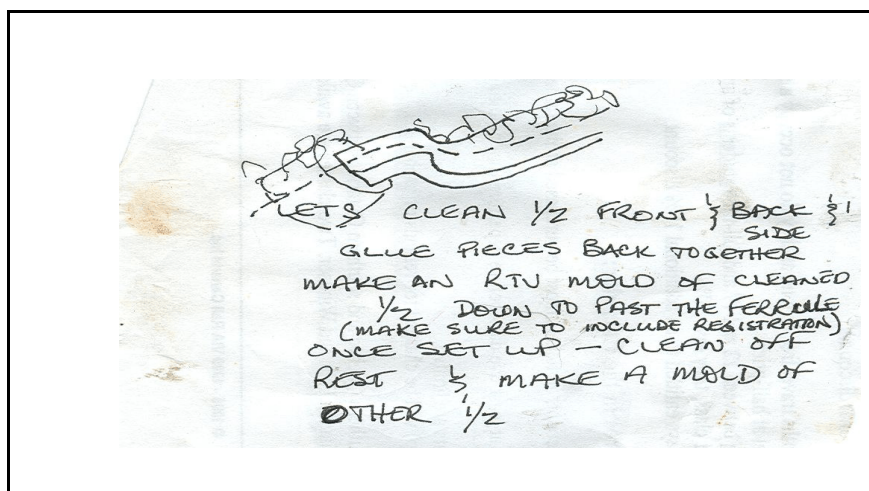 LETS CLEAN 1/2 FRONT & BACK & 1
SIDE
GLUE PIECES BACK TOGETHER
MAKE AN RTV MOLD OF CLEANED
1/2 DOWN TO PAST THE FERRULE
(MAKE SURE TO INCLUDE REGISTRATION)
ONCE SET UP – CLEAN OFF
REST & MAKE A MOLD OF
OTHER 1/2